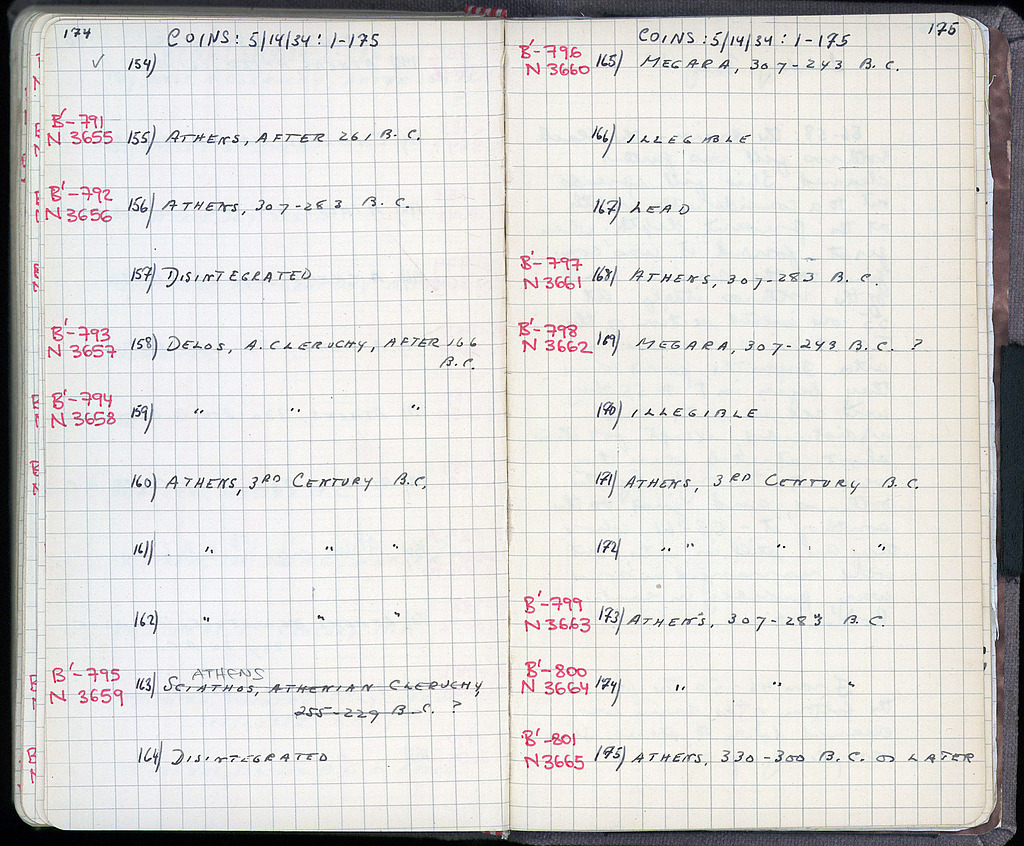 174
COINS: 5/14/34: 1-175
✓ 154)
B'-791
N 3655 155) ATHENS, AFTER 261 B.C.
B'-792
N 3656 156) ATHENS, 307-283 B.C.
157) DISINTEGRATED
B'-793
N 3657 158) DELOS, A. CLERUCHY, AFTER 166
B.C.
B'-794
N 3658 159) " " "
160) ATHENS, 3RD CENTURY B.C.
161) " " "
162) " " "
ATHENS
B'-795
N 3659 163) SCIATHOS, ATHENIAN CLERUCHY
255-229 B.C. ?
164) DISINTEGRATED
175
COINS: 5/14/34: 1-175
B'-796
N 3660 165) MEGARA, 307-243 B.C.
166) ILLEGIBLE
167) LEAD
B'-797
N 3661 168) ATHENS, 307-283 B.C.
B'-798
N 3662 169) MEGARA, 307-243 B.C. ?
170) ILLEGIBLE
171) ATHENS, 3RD CENTURY B.C.
172) " " " "
B'-799
N 3663 173) ATHENS, 307-283 B.C.
B'-800
N 3664 174) " " "
B'-801
N 3665 175) ATHENS, 330-300 B.C. OR LATER